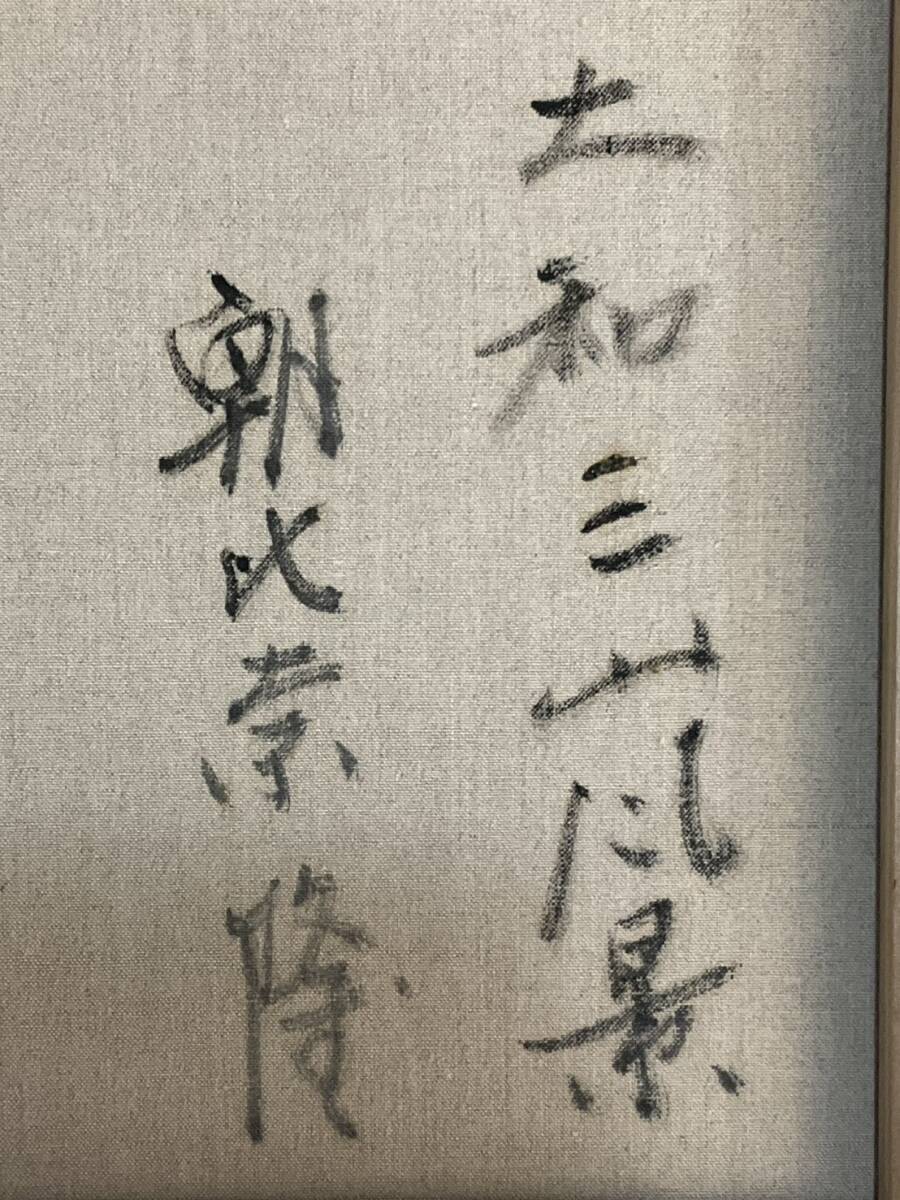 大和三山風景
朝比奈隆